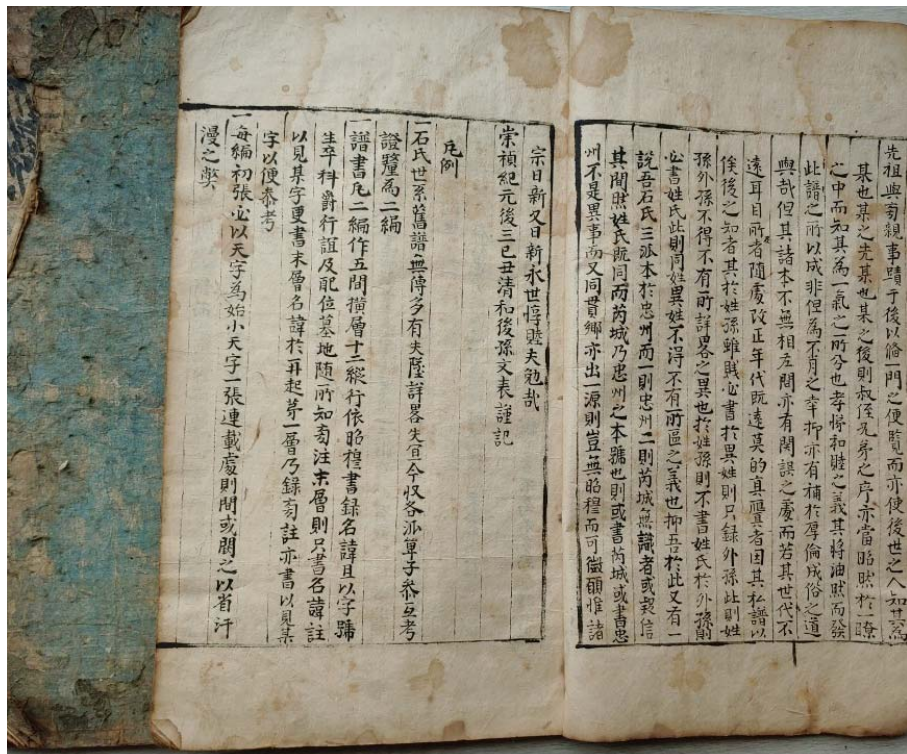 先祖與旁親事蹟于後以脩一門之便覽而亦使後世之人知其爲
某也某之先某也某之後則叔侄兄弟之序亦當昭然於一瞭
之中而知其爲一氣之所分也孝悌和睦之義其將油然而發
此譜之所以成非但爲不肖之幸抑亦有補於厚倫成俗之道
與哉但其諸本不無相左間亦有闕誤之處而若其世代不
遠耳目所者隨處改正年代旣遠莫的真贗者因其私譜以
俟後之知者其於姓孫雖賤必書於異姓則只錄外孫此則姓
孫外孫不得不有所詳畧之異也於姓孫則不書姓氏於外孫則
必書姓氏此則同姓異姓不得不有所區之義也抑吾於此又有一
說吾石氏三派本於忠州而一則忠州二則芮城無識者或疑信
其間然姓氏旣同而芮城乃忠州之本號也則或書芮城或書忠
州不是異事而又同貫鄕亦出一源則豈無昭穆而可徵顧惟諸
宗日新又日新永世惇睦夫勉哉
崇禎紀元後三己丑淸和後孫文表謹記
凡例
一石氏世系舊譜無傳多有失墜詳畧失宜今收各派單子參互考
證釐爲二編
一譜書凡二編作五間橫層十二縱行依昭穆書錄名諱且以字號
生卒科爵行誼及配位墓地隨所知旁注末層則只書名諱註
以見某字更書末層名諱於再起第一層乃錄旁註亦書以見某
字以便叅考
一每編初張必以天字爲始小天字一張連載處則間或闕之以省汗
漫之弊